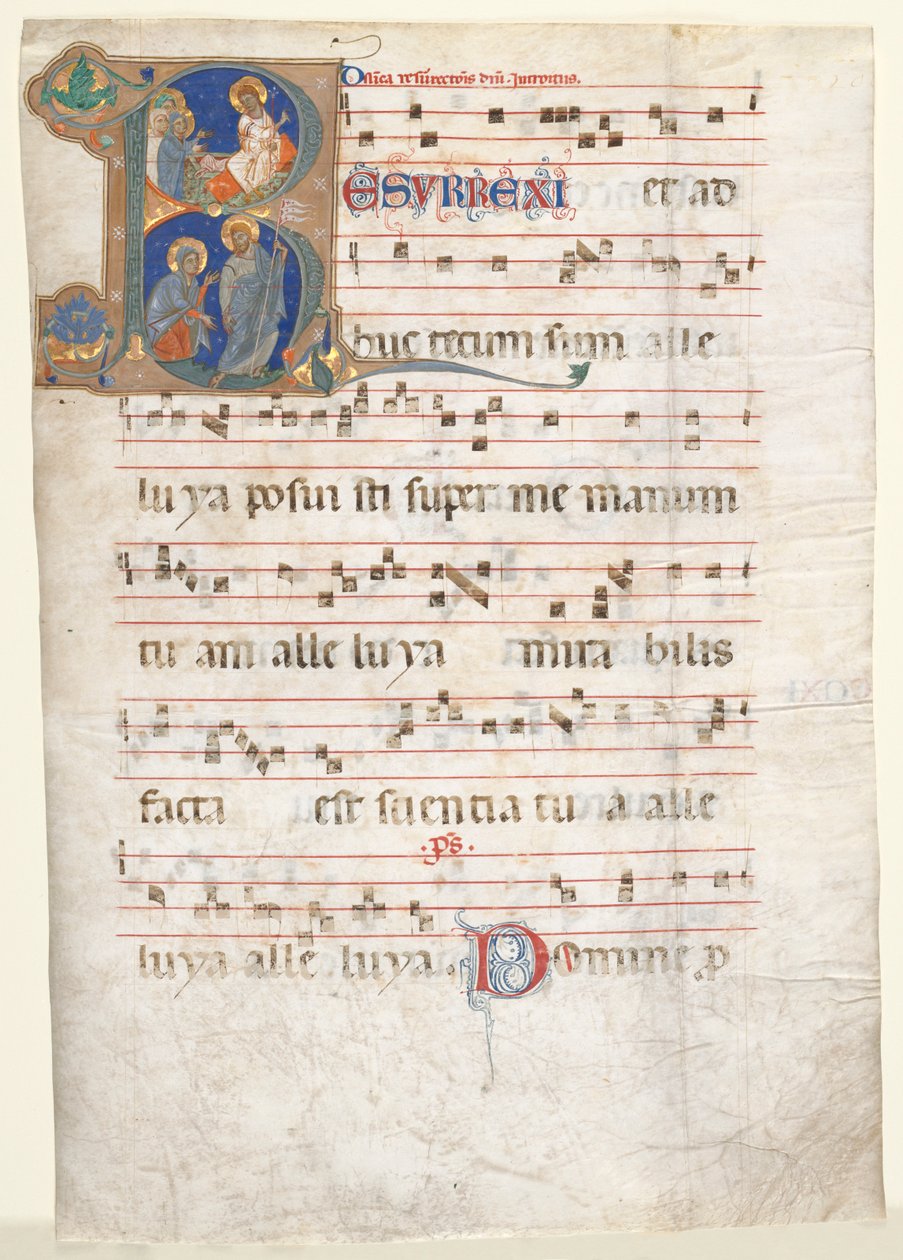 Dn̄ica resur̄rectōis dn̄i. Introitus.
RESVRREXI et ad
huc tecum sum alle
lu ya posui sti super me manum
tu am alle lu ya mira bilis
facta est scientia tu a alle
·pš·
luya alle luya. Domine ꝓ